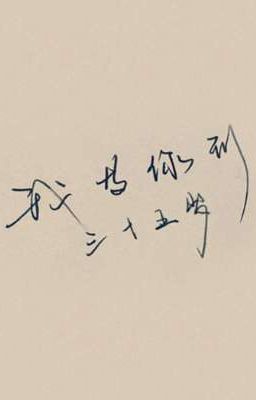 我等你到
三十五岁